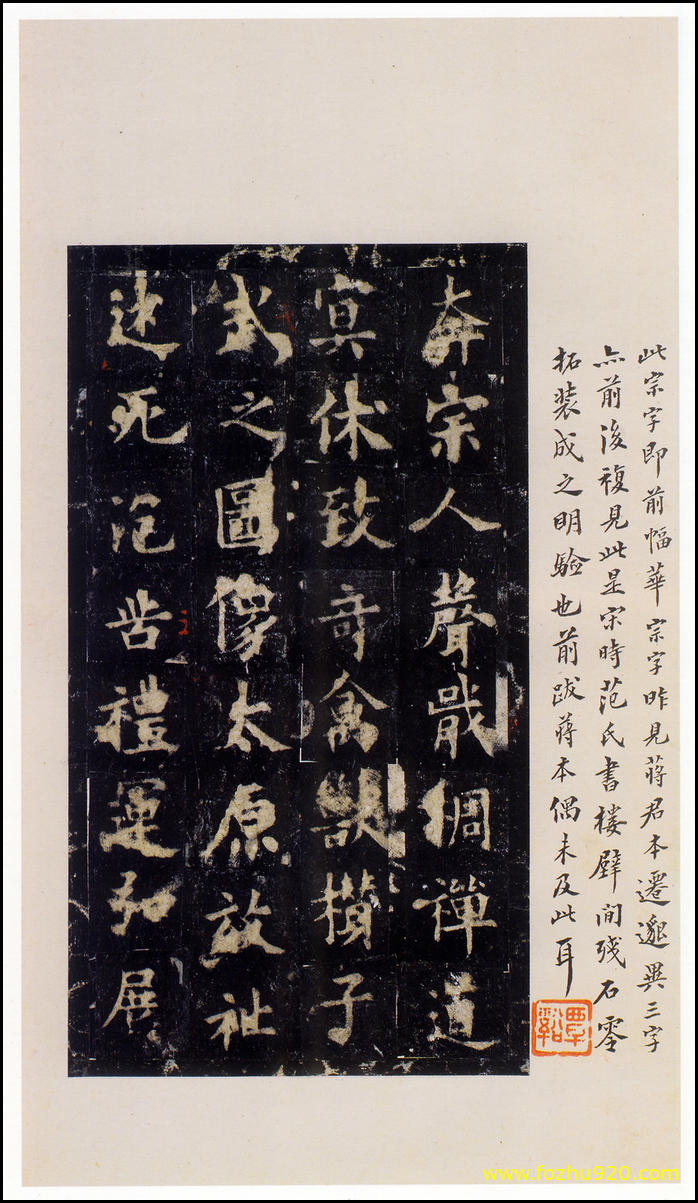 此宗字即前幅華宗字昨見蔣君本遷邈異三字
亦前後複見此是宋時范氏書樓壁間殘石零
拓裝成之明驗也前跋蔣本偶未及此耳
覃谿
奔宗人聲戢綢禪道
冥休致奇禽獸櫕子
式之圖像太原放祉
死禮運弘展
www.fozhu920.com